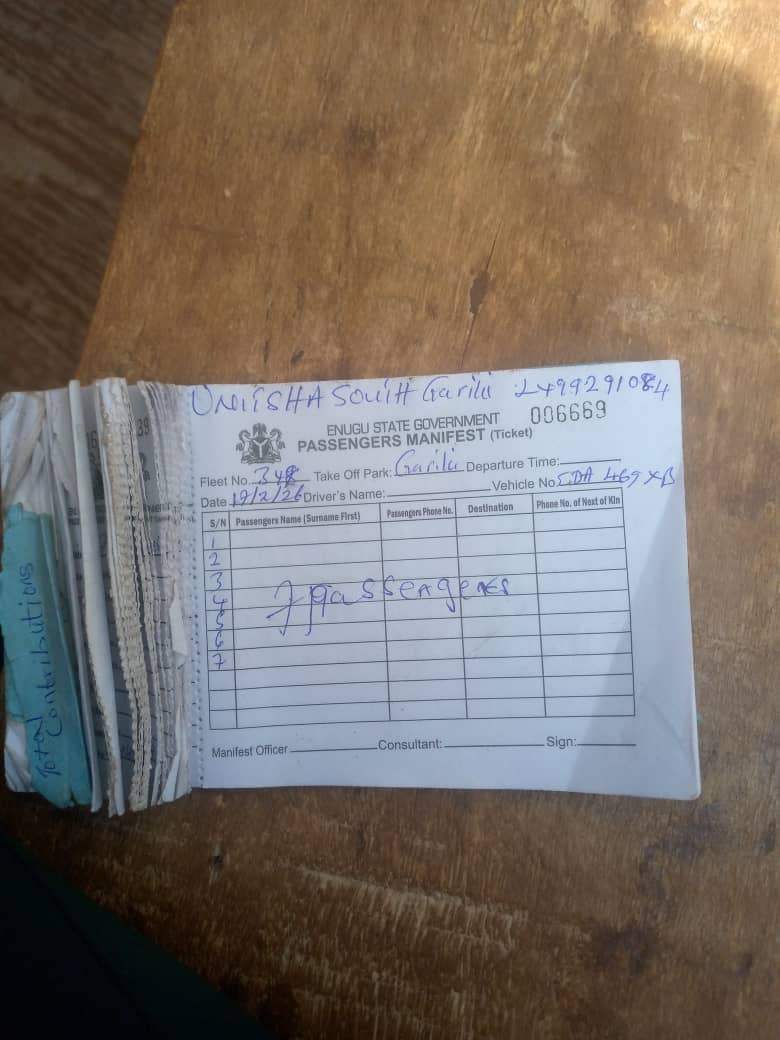 UNITSHA SOUTH Garili 2499291084
ENUGU STATE GOVERNMENT 006669
PASSENGERS MANIFEST (Ticket)
Fleet No. 348 Take Off Park: Garili Departure Time:
Date 19/2/26 Driver's Name: Vehicle No. 469 XB
S/N Passengers Name (Surname First) Passengers Phone No. Destination Phone No. of Next of Kin
1
2
3
4
5
6
7
7 passengers
Manifest Officer Consultant: Sign:
Total
Contributions
39